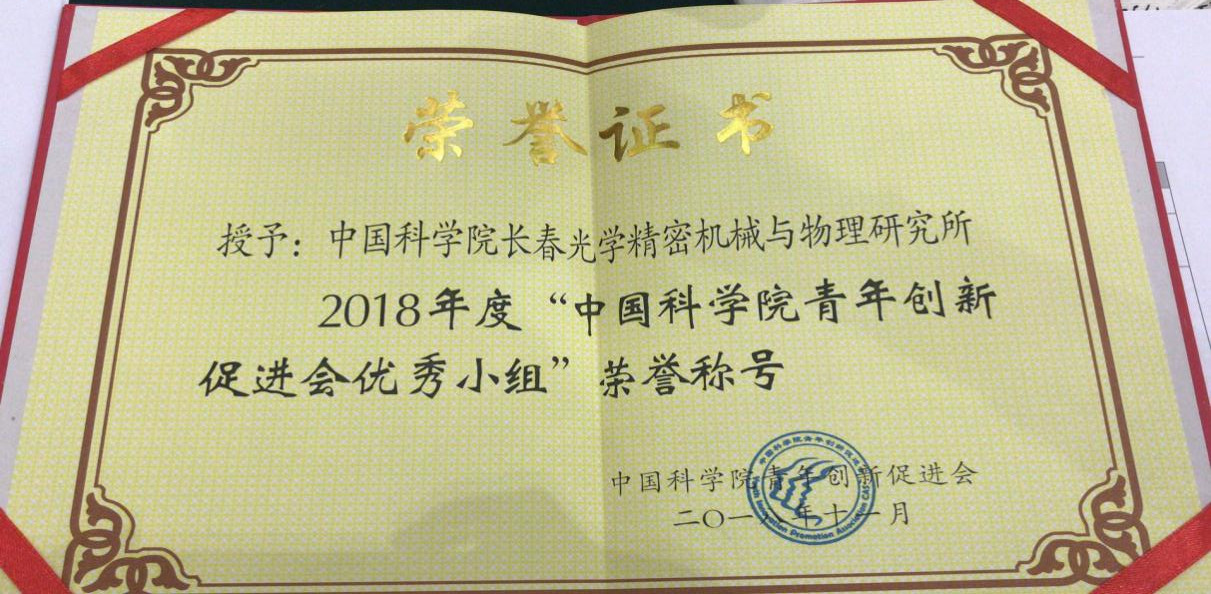 荣誉证书
授予：中国科学院长春光学精密机械与物理研究所
2018年度“中国科学院青年创新
促进会优秀小组”荣誉称号
中国科学院青年创新促进会
二〇一八年十一月
中国科学院青年创新促进会
Youth Innovation Promotion Association CAS